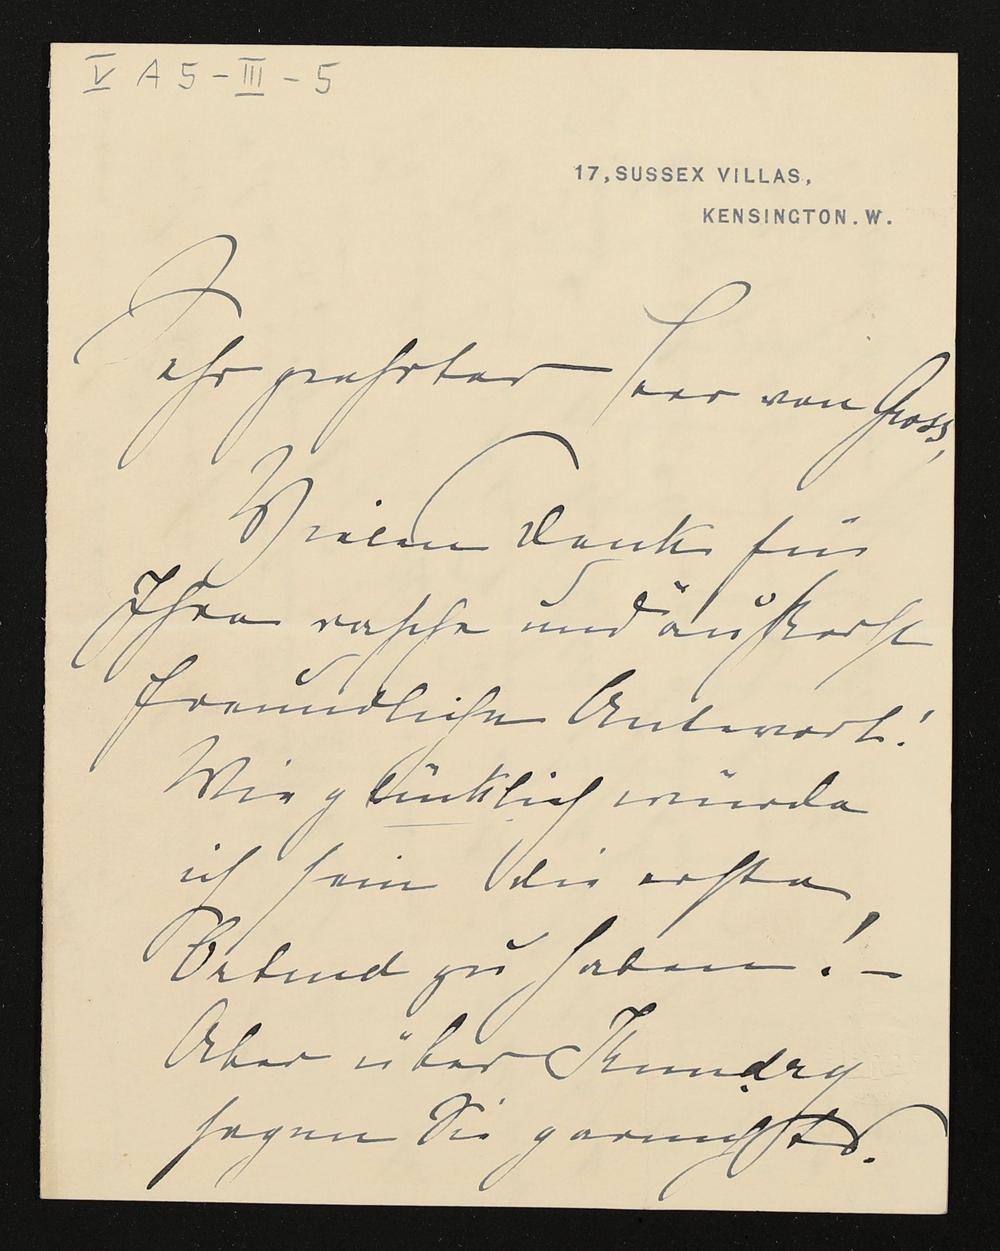 V A 5 - III - 5
17, SUSSEX VILLAS,
KENSINGTON. W.
Sehr geehrter Herr von Gross,
Vielen Dank für
Ihre rasche und äußerst
freundliche Antwort!
Wie glücklich würde
ich sein die erste
Ortrud zu haben! —
Aber über Kundry
sagen Sie garnichts.